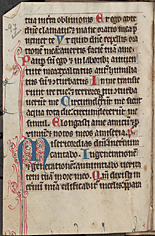 tua in terra oblivionis Et ego ad te
domine clamavi et mane oratio mea p
veniet te Ut quid domine repellis ora
tionem meam avertis faciem tuam a me
Pauper sum ego et in laboribus a iuven
tute mea exaltatus autem humilia
tus sum et conturbatus In me transie
runt ire tue et terrores tui conturba
verunt me Circumdederunt me sicut
aqua tota die circumdederunt me si
mul Elongasti a me amicum et p
ximum et notos meos a miseria
Misericordias domini in eternum
cantabo In generationem
et generationem annuntiabo veritatem
tuam in ore meo Qm dixisti in